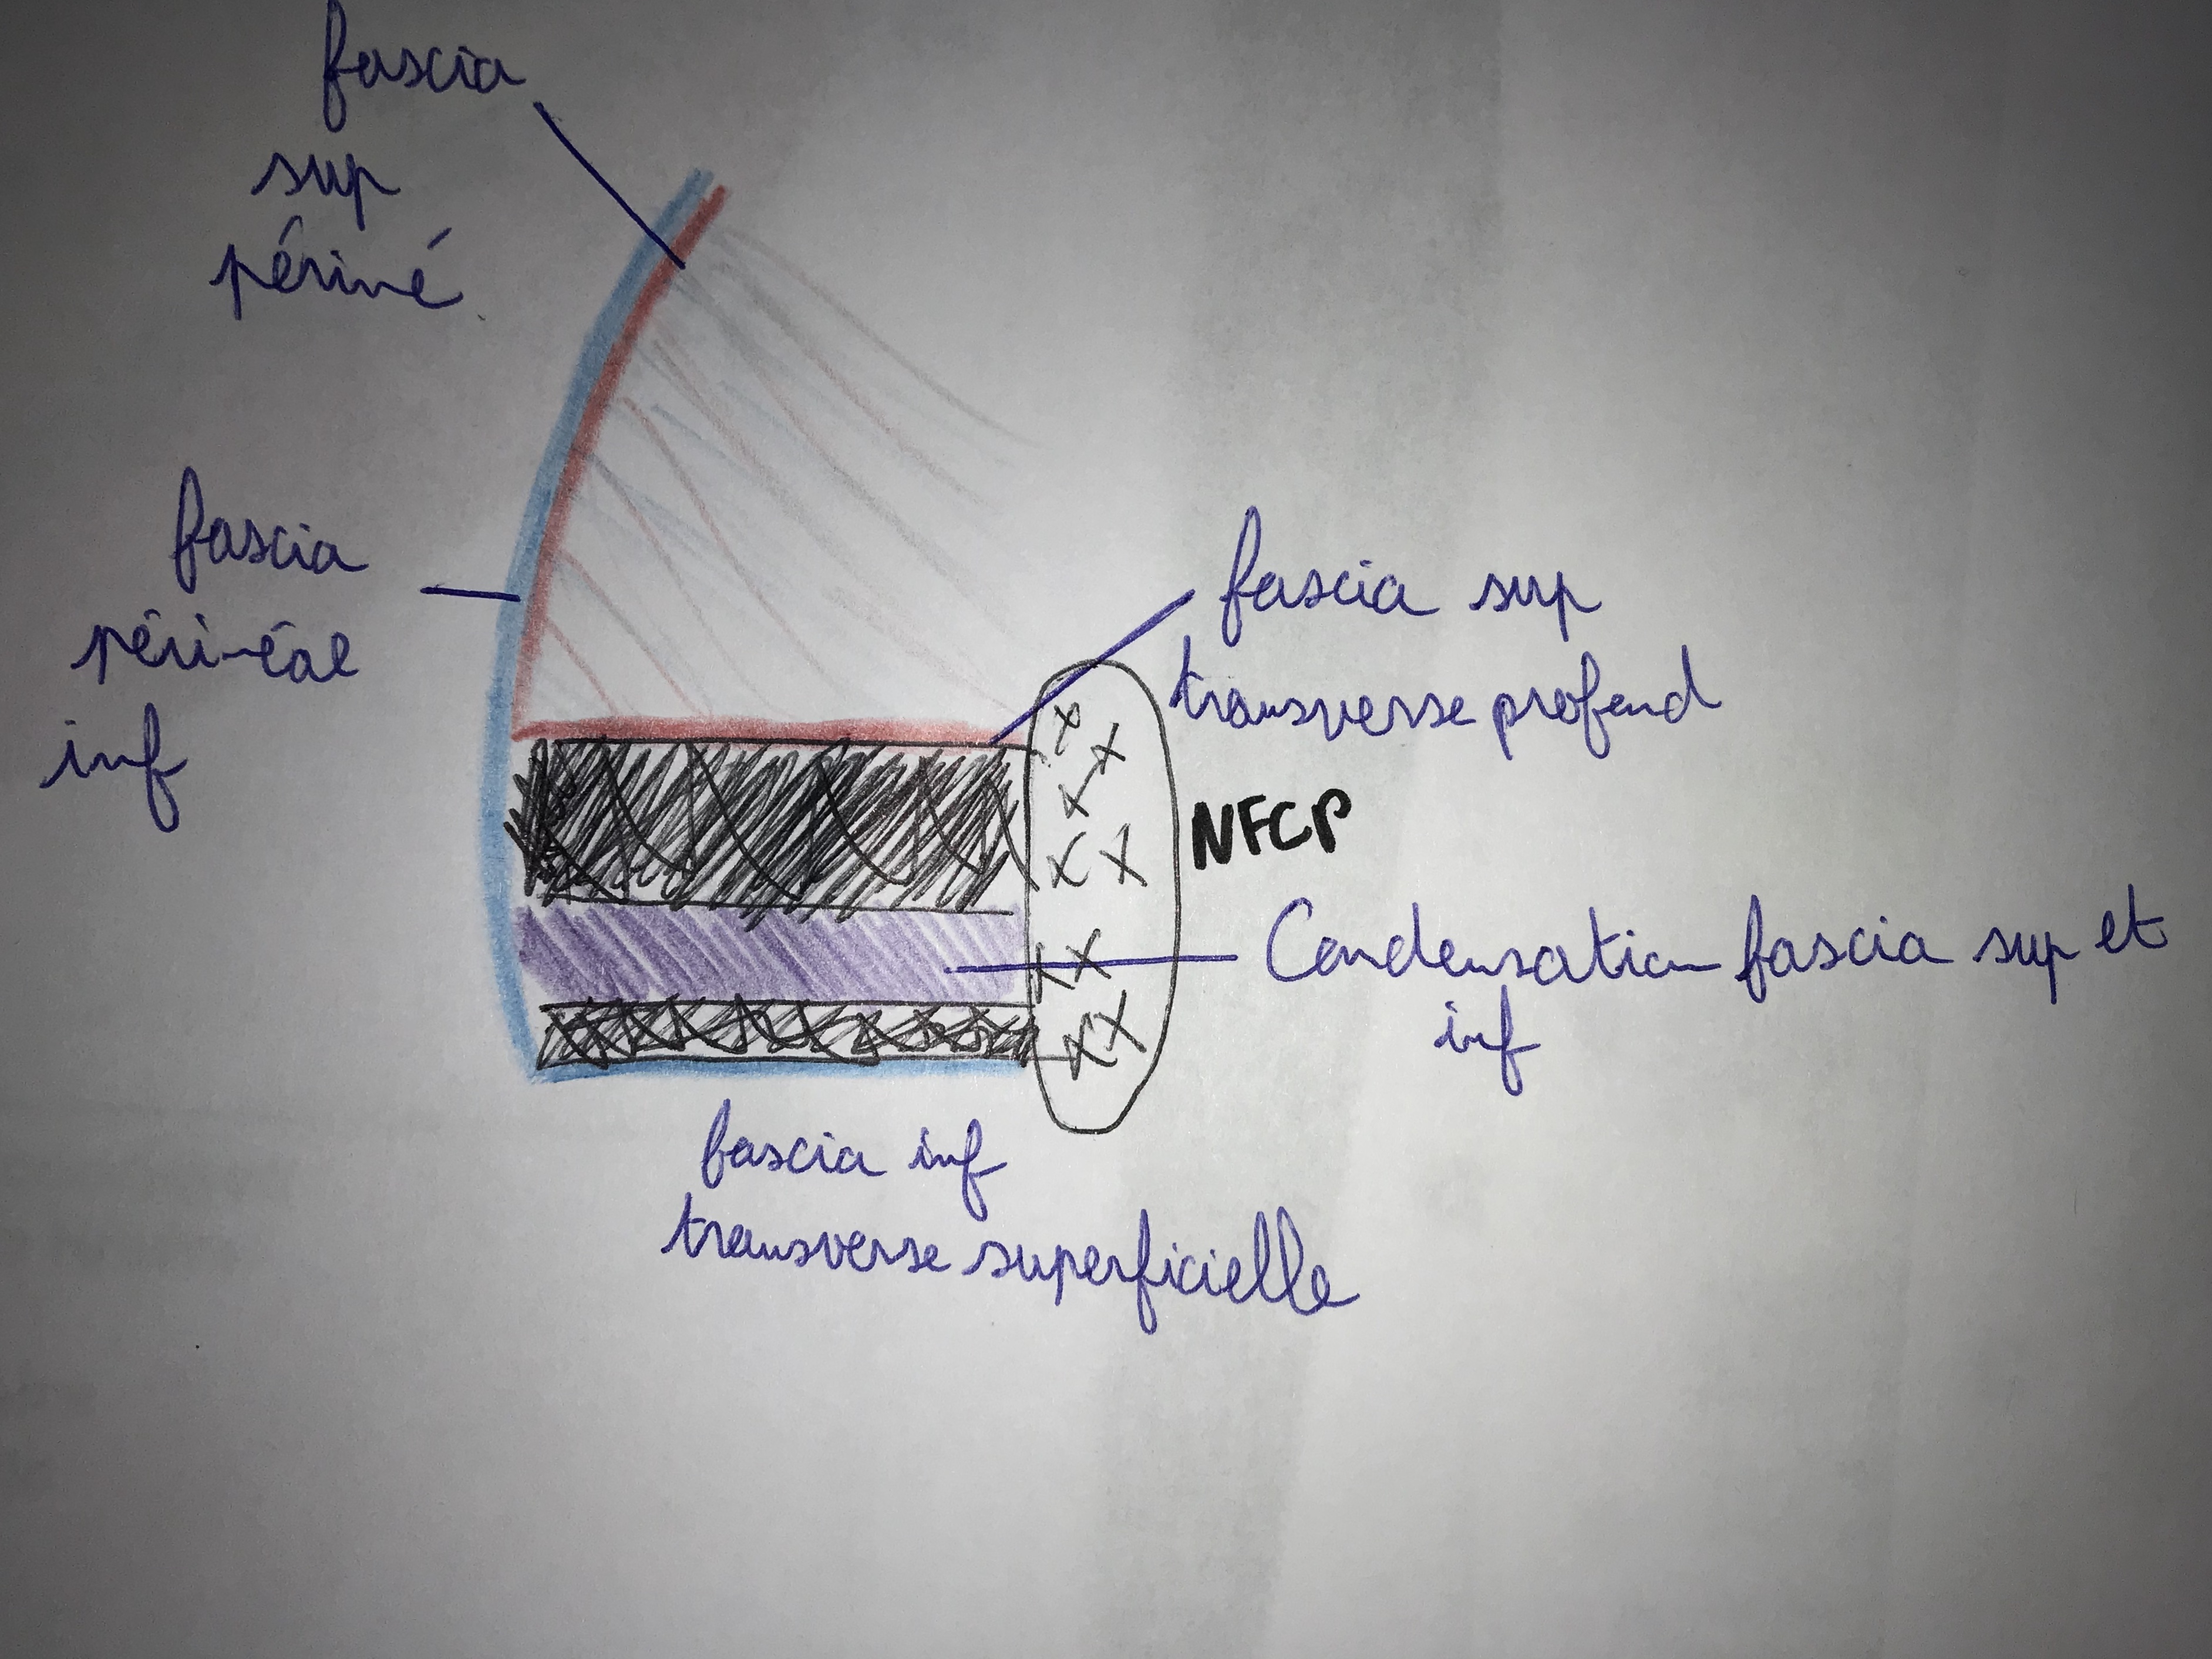 fascia
sup
périné
fascia
périnéal
inf
fascia sup
transverse profond
NFCP
Condensation fascia sup et
inf
fascia inf
transverse superficielle